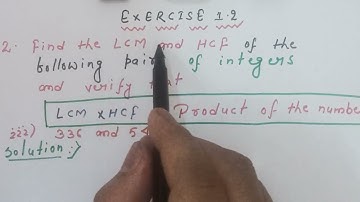 EXERCISE 1.2
2. Find the LCM and HCF of the
following pair of integers
and verify that
LCM x HCF Product of the number
iii) 336 and
Solution :-